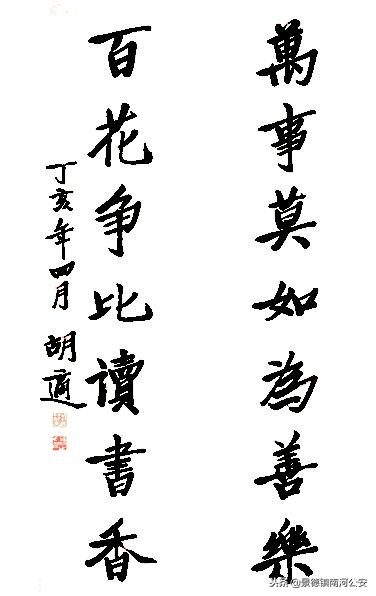 萬事莫如為善樂
百花争比讀書香
丁亥年四月 胡適
头条 @景德镇南河公安